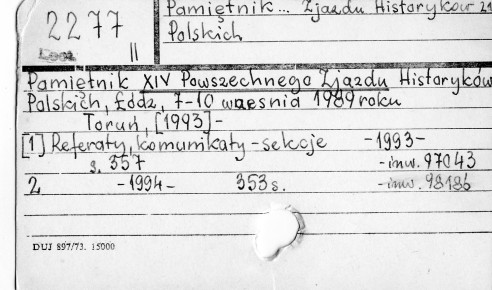 2277
II
Pamiętnik... Zjazdu Historyków
Polskich
Pamiętnik XIV Powszechnego Zjazdu Historyków
Polskich, Łódź, 7-10 września 1989 roku
Toruń, [1993]-
[1] Referaty, komunikaty - sekcje -1993-
s. 357 -inw. 97043
2 -1994- 353 s. -inw. 98186
DUJ 897/73. 15000